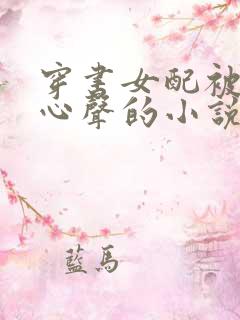 穿書女配被
心聲的小說
藍馬